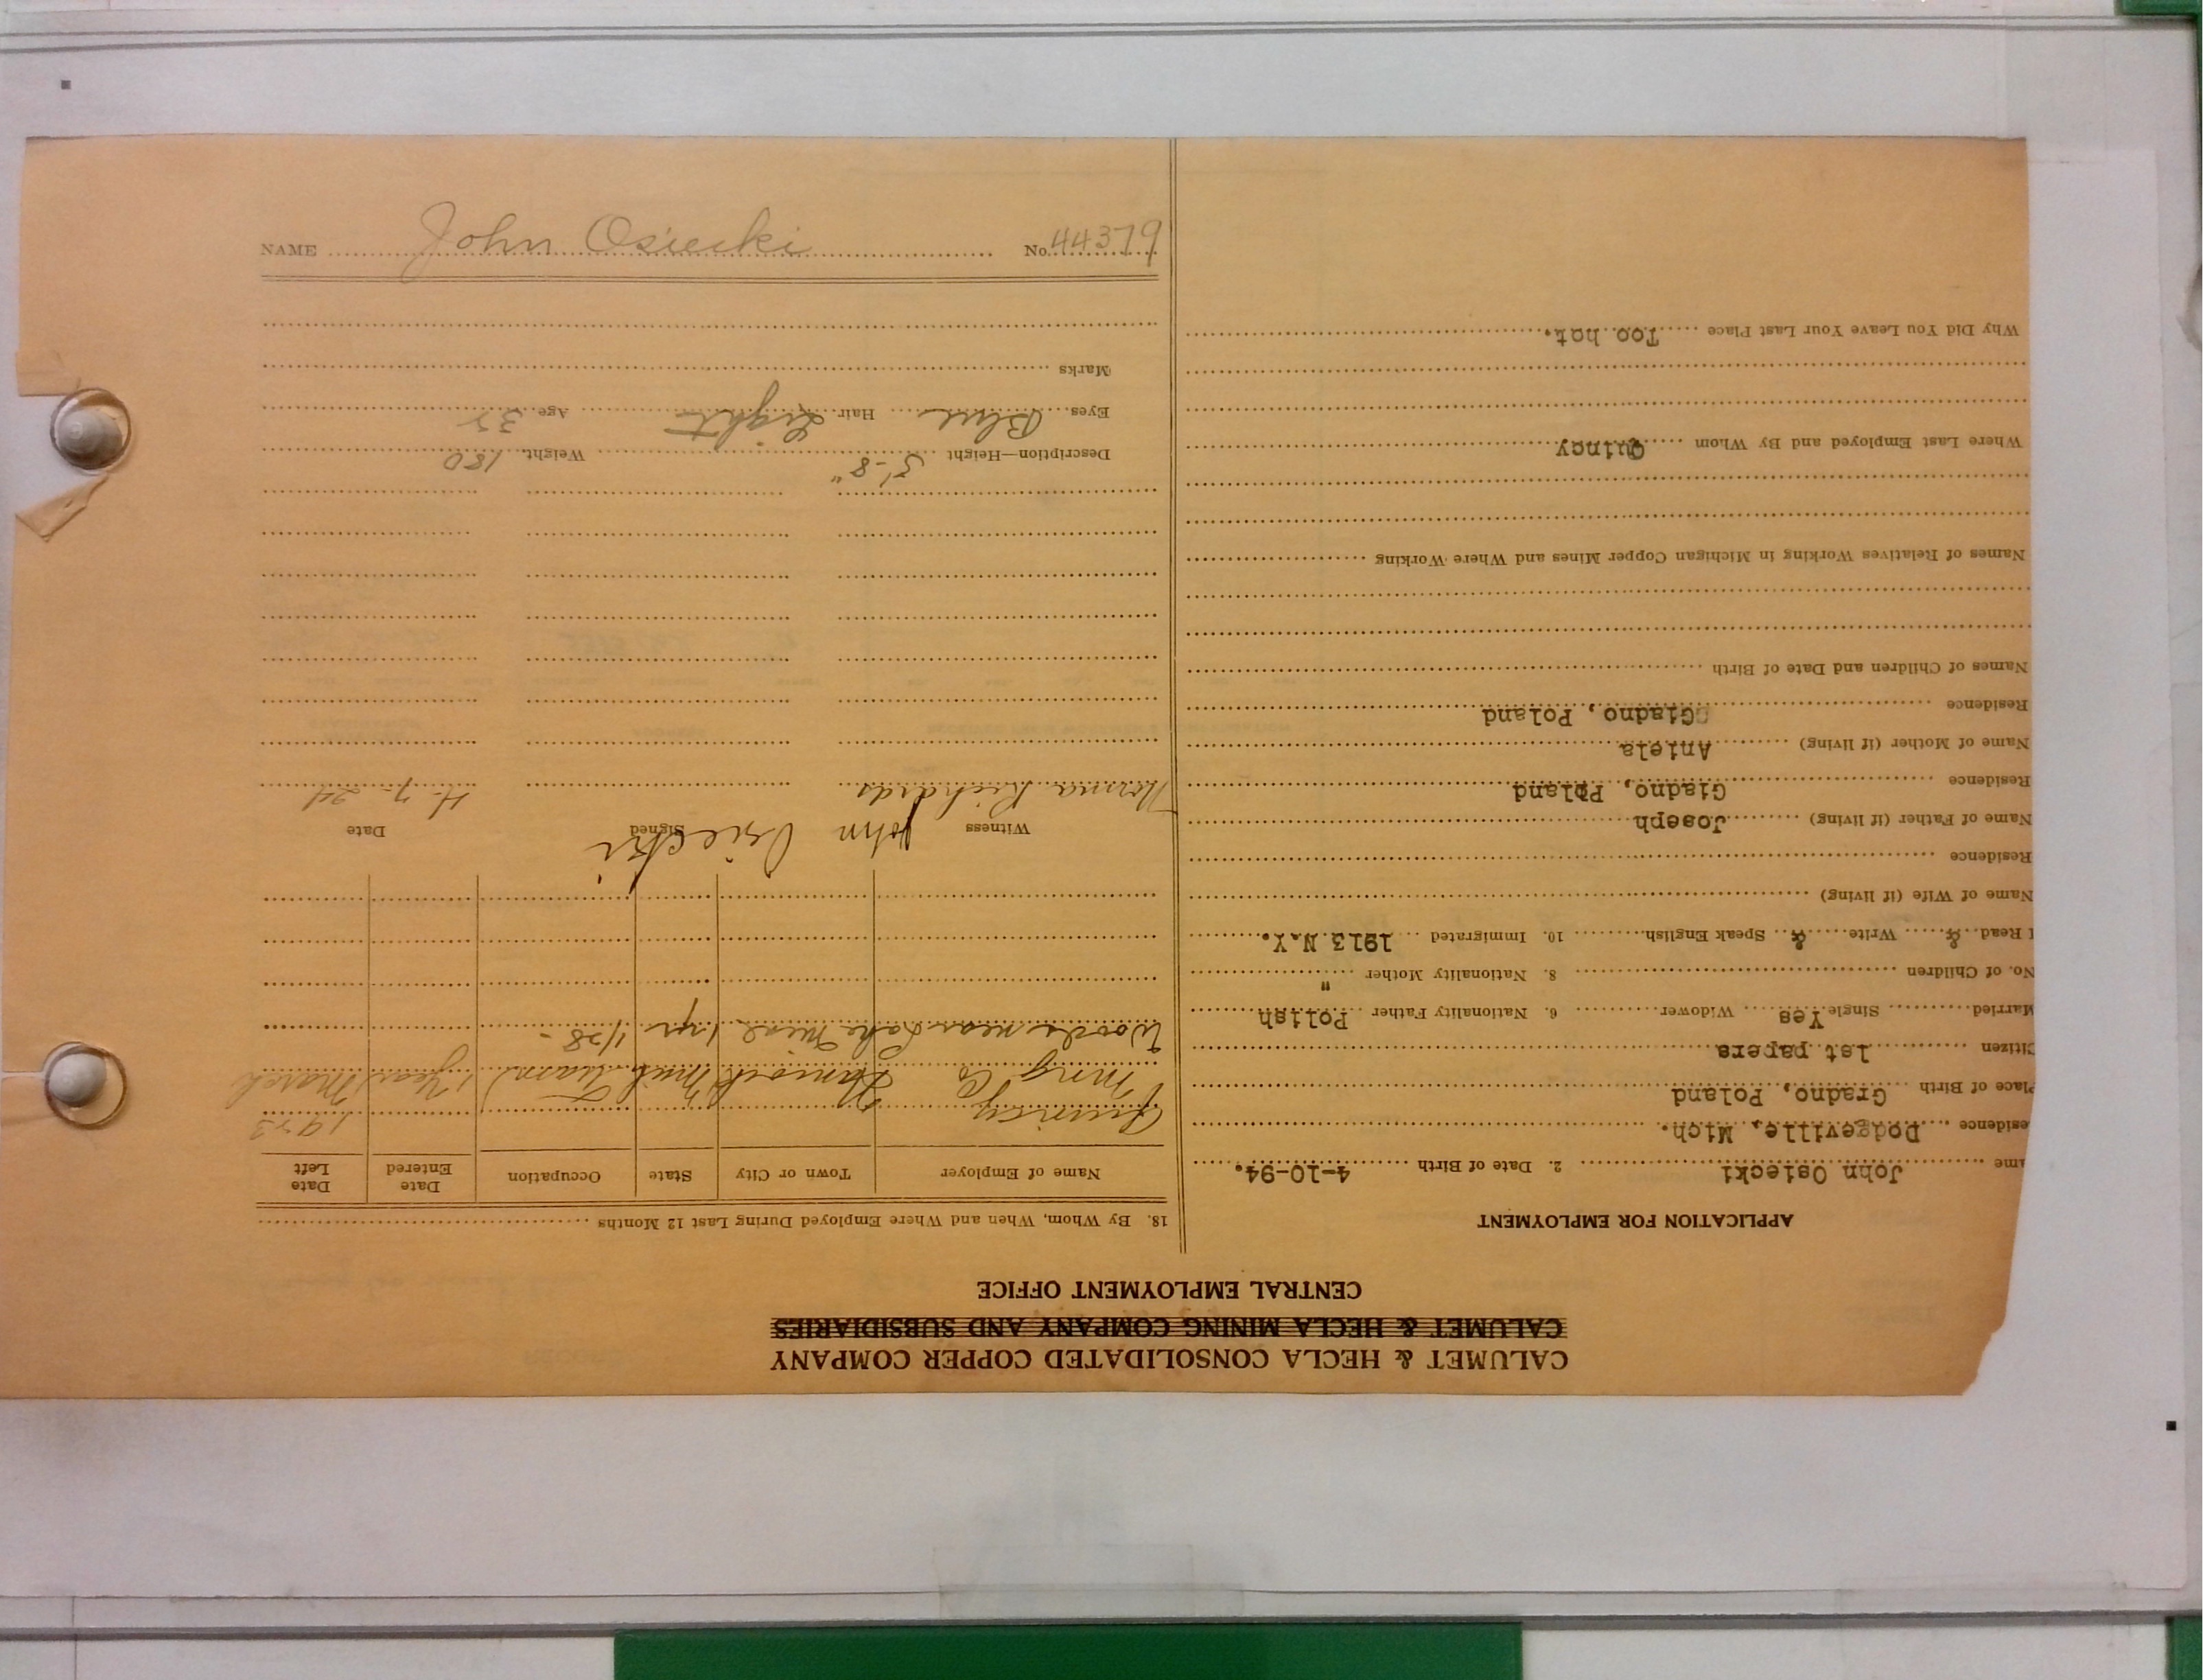 CALUMET & HECLA CONSOLIDATED COPPER COMPANY
CALUMET & HECLA MINING COMPANY AND SUBSIDIARIES
CENTRAL EMPLOYMENT OFFICE
APPLICATION FOR EMPLOYMENT
ame John Osiecki 2. Date of Birth 4-10-94.
esidence Dodgeville, Mich.
Place of Birth Gradno, Poland
Citizen 1st papers
Married Single Yes Widower 6. Nationality Father Polish
No. of Children 8. Nationality Mother "
Read & Write & Speak English 10. Immigrated 1913 N.Y.
Name of Wife (if living)
Residence
Name of Father (if living) Joseph
Residence Giadno, Poland
Name of Mother (if living) Aniela
Residence Giadno, Poland
Names of Children and Date of Birth
Names of Relatives Working in Michigan Copper Mines and Where Working
Where Last Employed and By Whom Quincy
Why Did You Leave Your Last Place Too hot.
18. By Whom, When and Where Employed During Last 12 Months
Name of Employer Town or City State Occupation Date Entered Date Left
Quincy 1923
Mng Co Hancock Mich Tram 1 Year March
Woods near Lake Mine 1 yr 1/28-
Witness Signed Date
John Osiecki
Norma Richards 4-7-24
Description—Height 5'-8" Weight 180
Eyes Blue Hair Light Age 35
Marks
NAME John Osiecki No. 44379